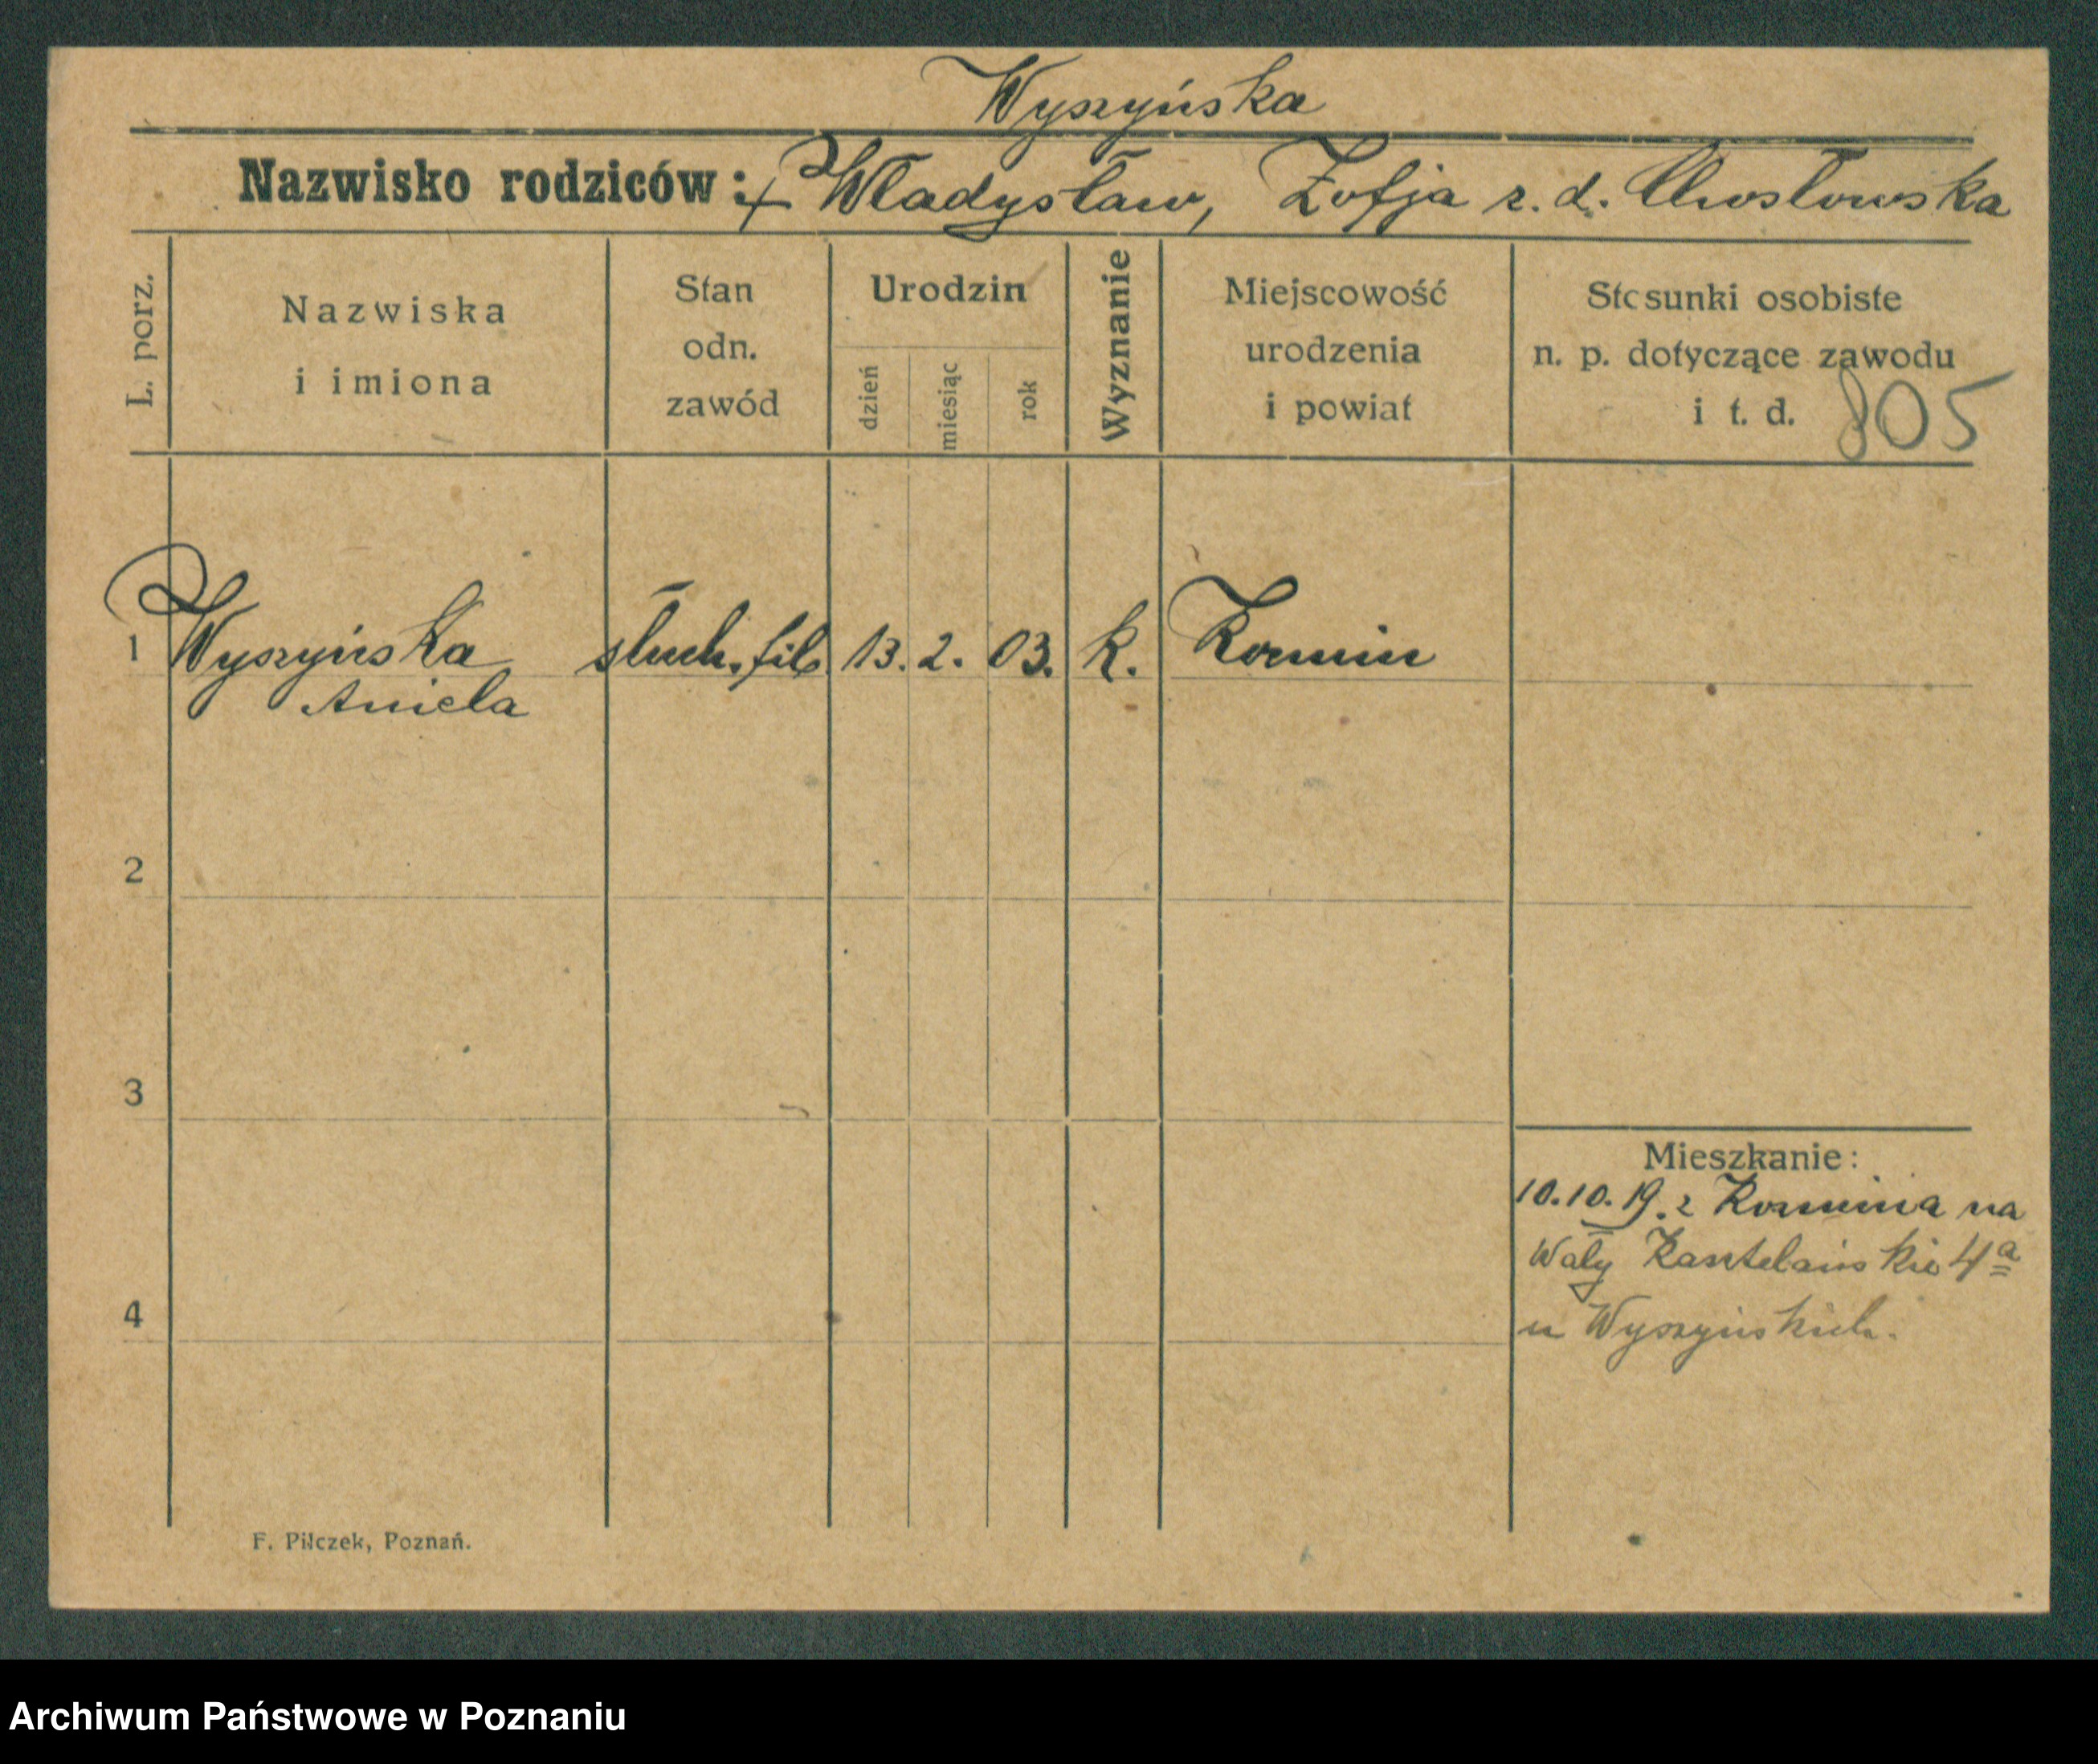 Wyszyńska
Nazwisko rodziców: + Władysław, Zofja z. d. Chosłowska
L. porz.
Nazwiska
i imiona
Stan
odn.
zawód
Urodzin
dzień
miesiąc
rok
Wyznanie
Miejscowość
urodzenia
i powiat
Stosunki osobiste
n. p. dotyczące zawodu
i t. d.
805
1 Wyszyńska słuch. fil. 13. 2. 03. k.
Aniela
2
3
4
Mieszkanie:
10.10.19. z na
Wały Kasztelańskie 4a
u Wyszyńskich.
F. Pilczek, Poznań.
Archiwum Państwowe w Poznaniu